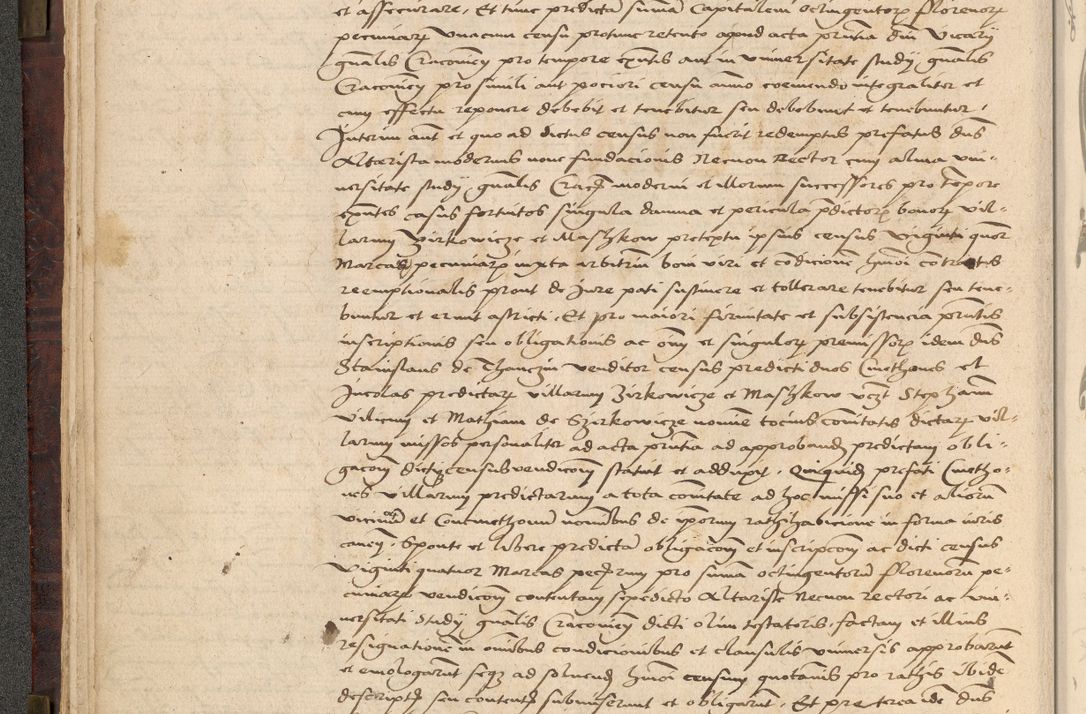 et assecurare, Et tunc predictā sumā Capitalem octingentorꝝ florenorꝝ
pecuniarꝝ unacum censu protunc retento apud acta pñtia dñi Vicarij
gñalis Cracovieñ pro tempore exñtis aut in universitate studij gñalis
Cracovieñ pro simili aut pociori censu añuo coemendo integraliter et
cum effectu reponere debebit et tenebitur seu debebunt et tenebuntur,
Interim aut̄ et quo ad dictus census non fuerit redemptus prefatus dñs
Altarista modernus nove fundacionis Necnon Rector cum alma uni-
versitate studij gñalis Craceñ moderni et illorum successores pro tempore
exñtes casus fortuitos singula damna et pericula p̄dictorꝝ bonorꝝ vil-
larum Zirkowicze et Mashkow pretextu ipsius census viginti quor
Marcas pecuniarꝝ iuxta arbitriū boni viri et condicionē hmoi contractus
reemptionalis prout de Jure pati sustinere et tollerare tenebitur seu tene-
buntur et erunt astricti, Et pro maiori firmitate et subsistencia pñtis
inscriptionis seu obligationis ac oīm et singulorꝝ premissorꝝ idem dñs
Stanislaus de Thanczin venditor census predicti duos Cmethones et
Incolas predictarꝝ villarum Zirkowicze et Mashkow vcꝫt Stephanū
Vilicum et Mathiam de Szirkowicze nomine tocius com̄itatis dictarꝝ vil-
larum missos personaliter ad acta pñtia ad approbandū predictam obli-
gacoēm dictiqꝫ census vendicoēm statuit et adduxit, Quiquidē prefati Cmetho-
nes villarum predictarum a tota com̄itate ad hoc missi suo et aliorū
vicinorū et Concmethonum nominibus de ipsorum rathihabicione in forma iuris
caneñ, Sponte et libere predictā obligacoēm et inscripcoēm ac dicti census
viginti quatuor Marcas pecꝫrum pro sumā octingentorū florenorū pe-
cuniarꝝ vendicoēm contentam sepedicto Altariste Necnon rectori ac uni-
versitati studij gñalis Cracovieñ dicti olim testatoris, factam et illius
resignationē in omnibus condicionibus et clausulis universis approbarūt
et emologarūt seqꝫ ad solvendū hmoi censum quotannis pro rathis ibidē
descriptꝭ seu contentꝭ submiserunt et obligarūt, Et preterea idē dñs